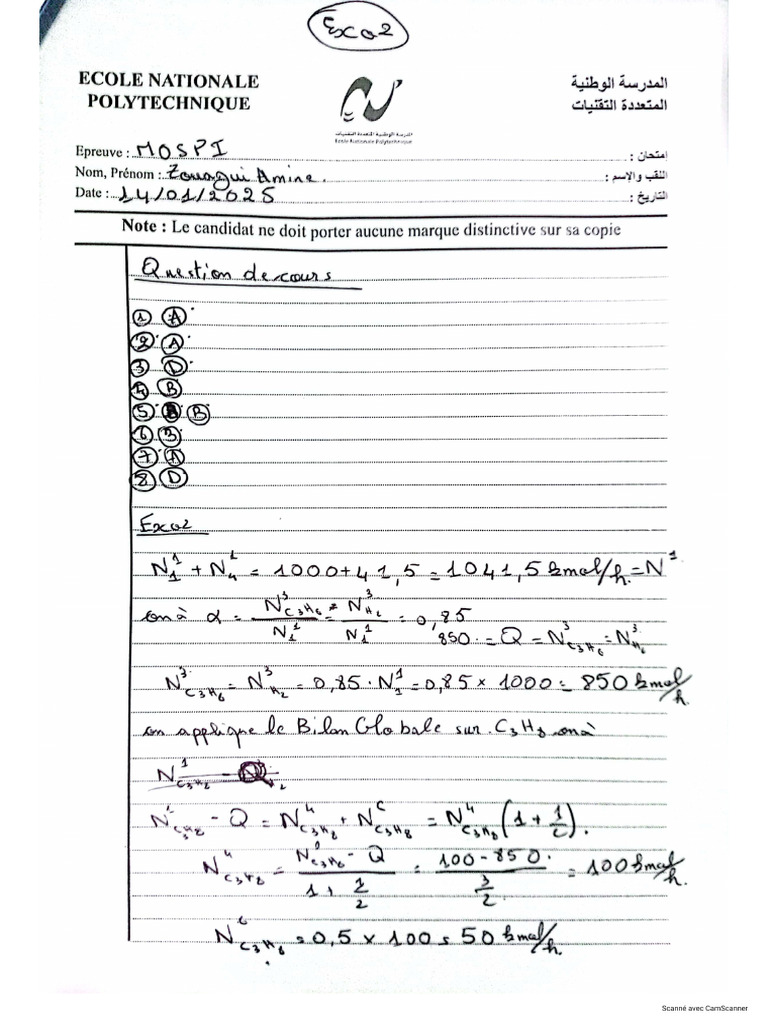 Exo2
ECOLE NATIONALE
POLYTECHNIQUE
المدرسة الوطنية
المتعددة التقنيات
المدرسة الوطنية المتعددة التقنيات
Ecole Nationale Polytechnique
Epreuve : MOSPI
إمتحان :
Nom, Prénom : Zouaoui Amine.
اللقب والاسم :
Date : 14/01/2025
التاريخ :
Note : Le candidat ne doit porter aucune marque distinctive sur sa copie
Question de cours
1 A
2 A
3 D
4 B
5 B
6 B
7 A
8 D
Exo2
N₁¹ + N₄¹ = 1000 + 41,5 = 1041,5 kmol/h. = N¹
on à α = N³C₃H₆ / N₁¹ = N³H₂ / N₁¹ = 0,85
850. = Q = N³C₃H₆ = N³H₂
N³C₃H₆ = N³H₂ = 0,85 . N₁¹ = 0,85 × 1000 = 850 kmol/h.
on applique le Bilan Globale sur C₃H₈ on à
N¹C₃H₈ - Q = N⁴C₃H₈ + N⁶C₃H₈ = N⁴C₃H₈ (1 + 1/2).
N⁴C₃H₈ = N¹C₃H₈ - Q / 1 + 1/2 = 100 - 850. / 3/2 = 100 kmol/h.
N⁶C₃H₈ = 0,5 × 100 = 50 kmol/h.
Scanné avec CamScanner